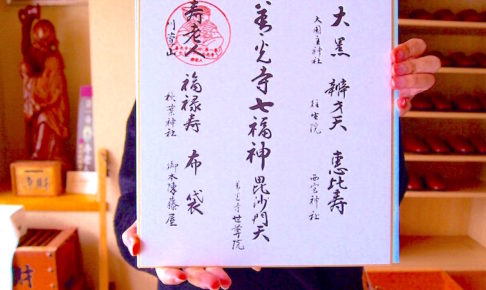 大黒
大国主神社
辨才天
往生院
恵比寿
西宮神社
善光寺七福神
毘沙門天
善光寺世尊院
寿老人
刈萱山
福禄寿
秋葉神社
布袋
御本陣藤屋